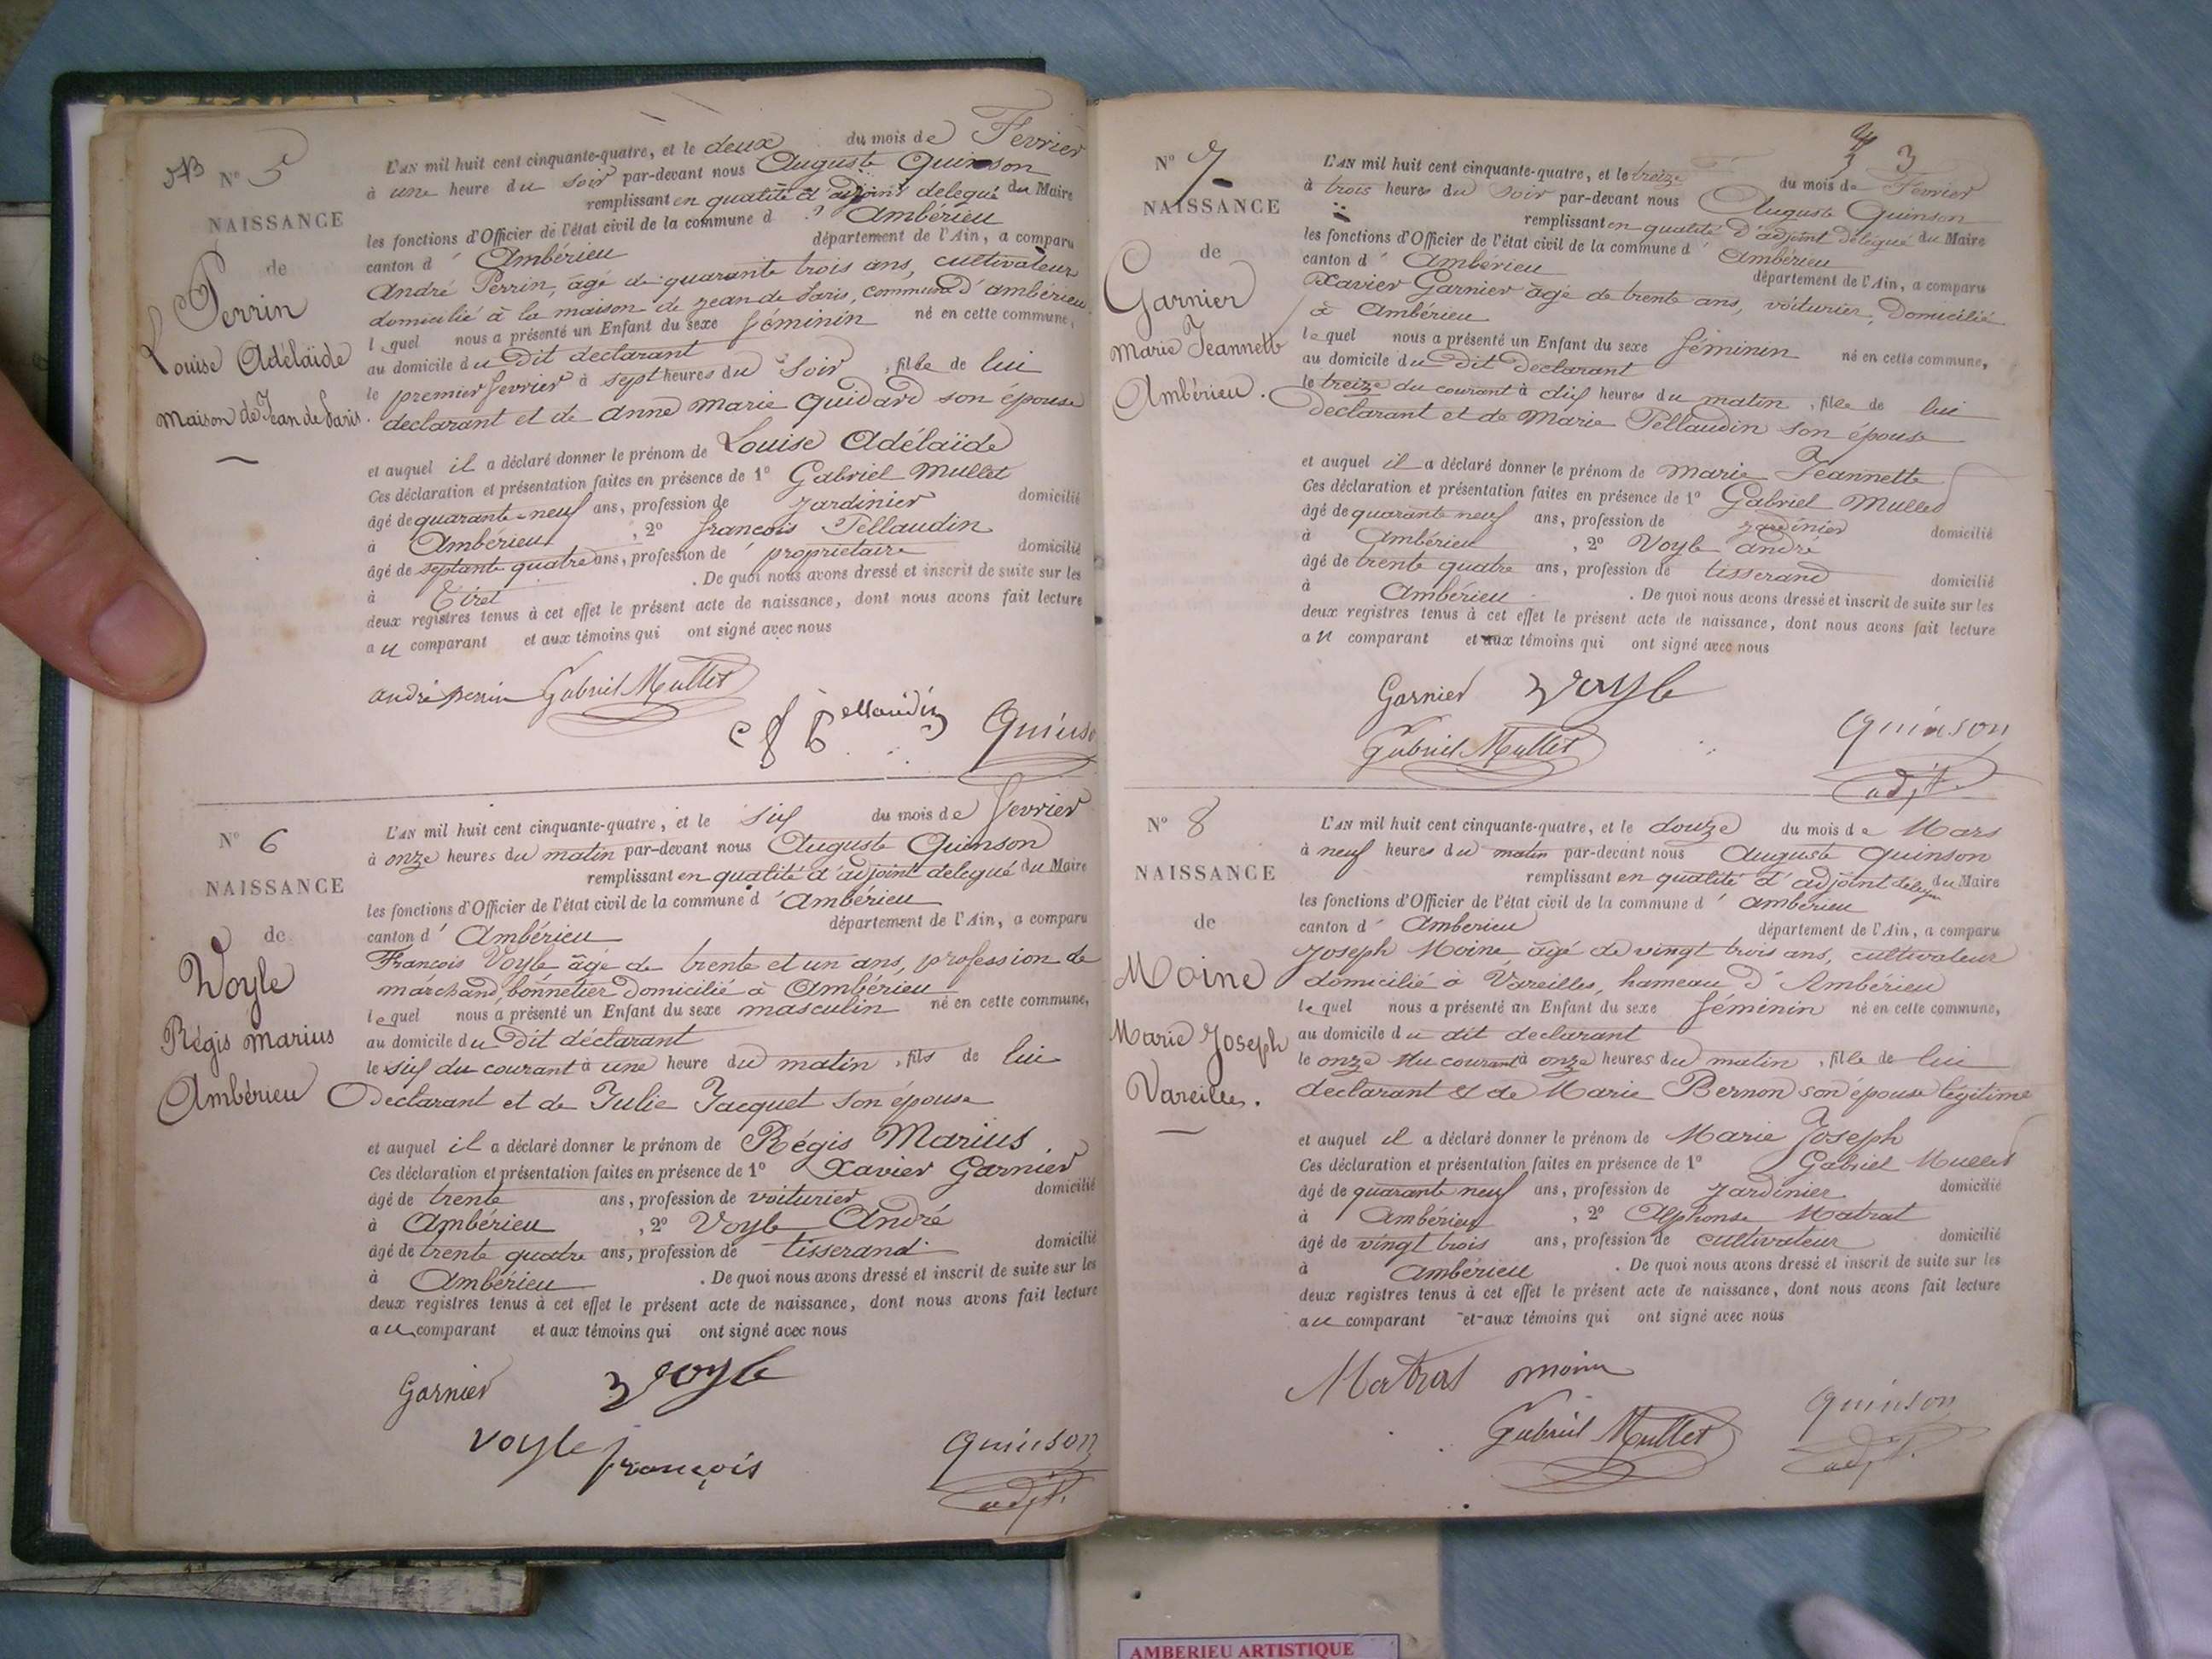 N° 5
NAISSANCE
de
Perrin
Louise Adélaïde
Maison de Jean de Paris.
L'AN mil huit cent cinquante-quatre, et le deux du mois de Fevrier
à une heure du soir par-devant nous Auguste Quinson
remplissant en qualité d'adjoint delegué du Maire
les fonctions d'Officier de l'état civil de la commune d' Ambérieu
canton d' Ambérieu département de l'Ain, a comparu
André Perrin, âgé de quarante trois ans, cultivateur
domicilié à la maison de Jean de Paris, commune d'ambérieu
lequel nous a présenté un Enfant du sexe féminin né en cette commune,
au domicile du Dit declarant
le premier fevrier à sept heures du soir, fille de lui
declarant et de Anne Marie Guidard son épouse
et auquel il a déclaré donner le prénom de Louise Adélaïde
Ces déclaration et présentation faites en présence de 1° Gabriel Mullet
âgé de quarante-neuf ans, profession de Jardinier domicilié
à Ambérieu, 2° françois Pellaudin
âgé de septante quatre ans, profession de propriétaire domicilié
à Tiret. De quoi nous avons dressé et inscrit de suite sur les
deux registres tenus à cet effet le présent acte de naissance, dont nous avons fait lecture
au comparant et aux témoins qui ont signé avec nous
andré perrin Gabriel Mullet
Pellaudin Quinso
N° 6
NAISSANCE
de
Voyle
Régis Marius
Ambérieu
L'AN mil huit cent cinquante-quatre, et le six du mois de fevrier
à onze heures du matin par-devant nous Auguste Quinson
remplissant en qualité d'adjoint delegué du Maire
les fonctions d'Officier de l'état civil de la commune d' Ambérieu
canton d' Ambérieu département de l'Ain, a comparu
François Voyle âgé de trente et un ans, profession de
marchand bonnetier domicilié à Ambérieu
lequel nous a présenté un Enfant du sexe masculin né en cette commune,
au domicile du Dit déclarant
le six du courant à une heure du matin, fils de lui
Declarant et de Julie Jacquet son épouse
et auquel il a déclaré donner le prénom de Régis Marius
Ces déclaration et présentation faites en présence de 1° Xavier Garnier
âgé de trente ans, profession de voiturier domicilié
à Ambérieu, 2° Voyle André
âgé de trente quatre ans, profession de tisserand domicilié
à Ambérieu. De quoi nous avons dressé et inscrit de suite sur les
deux registres tenus à cet effet le présent acte de naissance, dont nous avons fait lecture
au comparant et aux témoins qui ont signé avec nous
Garnier voyle
voyle françois quinson
adjt.
3 3
N° 7
NAISSANCE
de
Garnier
Marie Jeannette
Ambérieu.
L'AN mil huit cent cinquante-quatre, et le treize du mois de Fevrier
à trois heures du soir par-devant nous Auguste Quinson
remplissant en qualité d'adjoint délégué du Maire
les fonctions d'Officier de l'état civil de la commune d' Ambérieu
canton d' Ambérieu département de l'Ain, a comparu
Xavier Garnier âgé de trente ans, voiturier, Domicilié
à Ambérieu
lequel nous a présenté un Enfant du sexe féminin né en cette commune,
au domicile du Dit déclarant
le treize du courant à dix heures du matin, fille de lui
declarant et de Marie Pellaudin son épouse
et auquel il a déclaré donner le prénom de Marie Jeannette
Ces déclaration et présentation faites en présence de 1° Gabriel Mullet
âgé de quarante neuf ans, profession de jardinier domicilié
à Ambérieu, 2° Voyle andré
âgé de trente quatre ans, profession de tisserand domicilié
à Ambérieu. De quoi nous avons dressé et inscrit de suite sur les
deux registres tenus à cet effet le présent acte de naissance, dont nous avons fait lecture
au comparant et aux témoins qui ont signé avec nous
Garnier voyle
Gabriel Mullet quinson
adjt.
N° 8
NAISSANCE
de
Moine
Marie Joseph
Vareilles.
L'AN mil huit cent cinquante-quatre, et le douze du mois de Mars
à neuf heures du matin par-devant nous Auguste Quinson
remplissant en qualité d'adjoint du Maire
les fonctions d'Officier de l'état civil de la commune d' ambérieu
canton d' Amberieu département de l'Ain, a comparu
Joseph Moine, âgé de vingt trois ans, cultivateur
domicilié à Vareilles, hameau d'Ambérieu
lequel nous a présenté un Enfant du sexe féminin né en cette commune,
au domicile du dit declarant
le onze du courant à onze heures du matin, fille de lui
declarant & de Marie Bernon son épouse légitime
et auquel il a déclaré donner le prénom de Marie Joseph
Ces déclaration et présentation faites en présence de 1° Gabriel Mullet
âgé de quarante neuf ans, profession de Jardinier domicilié
à Ambérieu, 2° Alphonse Matrat
âgé de vingt trois ans, profession de cultivateur domicilié
à Ambérieu. De quoi nous avons dressé et inscrit de suite sur les
deux registres tenus à cet effet le présent acte de naissance, dont nous avons fait lecture
au comparant et aux témoins qui ont signé avec nous
Matrat moine
Gabriel Mullet quinson
adjt.
AMBERIEU ARTISTIQUE